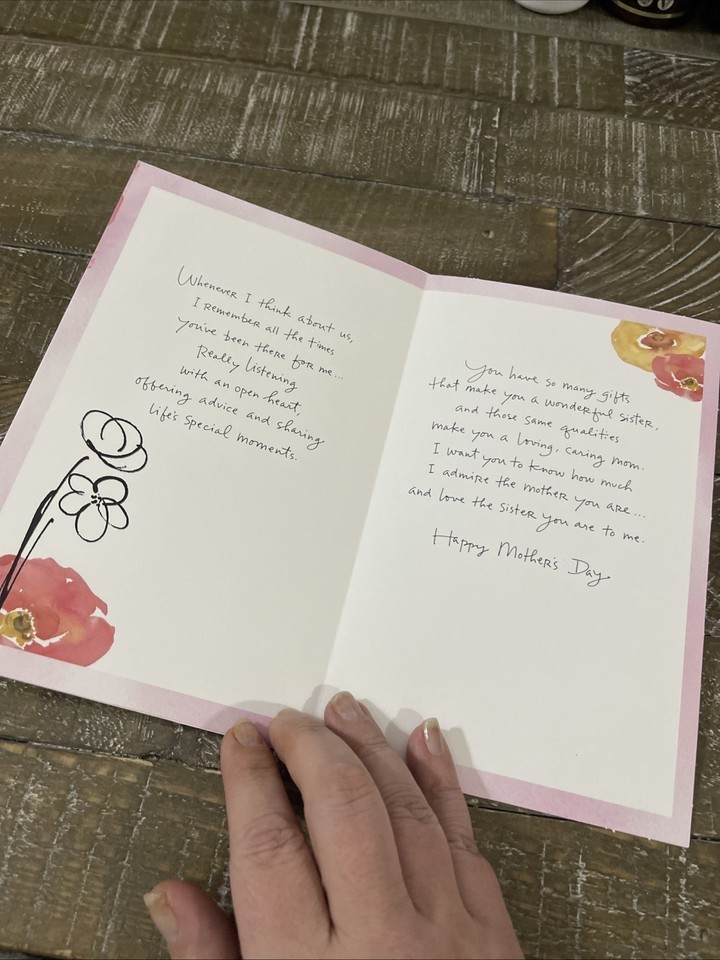 Whenever I think about us,
I remember all the times
you've been there for me...
Really listening
with an open heart,
offering advice and sharing
life's special moments.
You have so many gifts
that make you a wonderful sister,
and those same qualities
make you a loving, caring mom.
I want you to know how much
I admire the mother you are...
and love the sister you are to me.
Happy Mother's Day